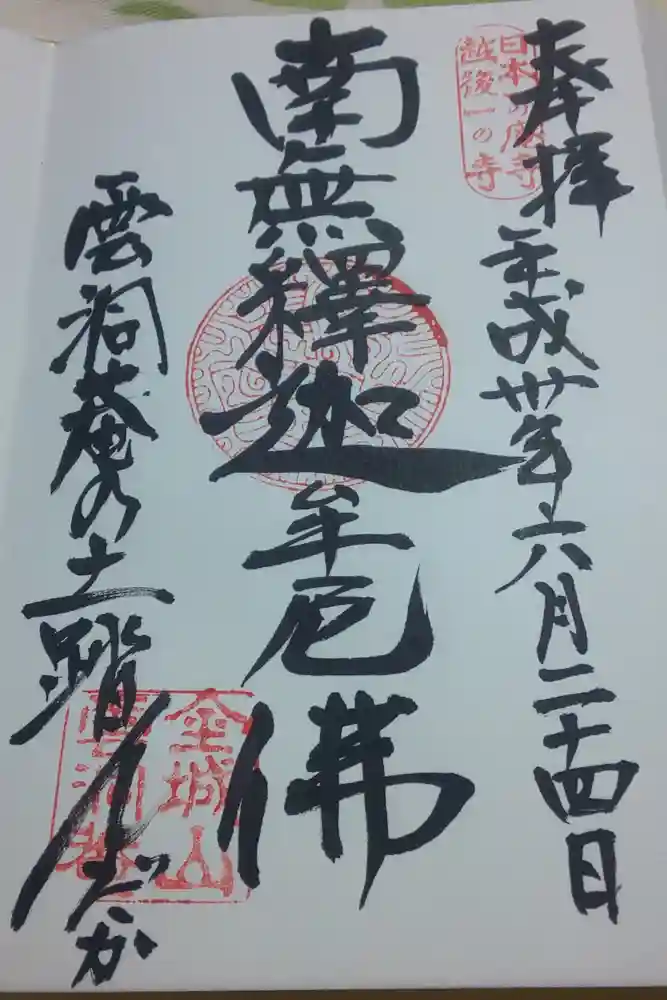 奉拝
平成卅年六月二十四日
日本一の寺
越後一の寺
南無釋迦牟尼佛
雲洞菴の土踏んだか
金城山
雲洞菴